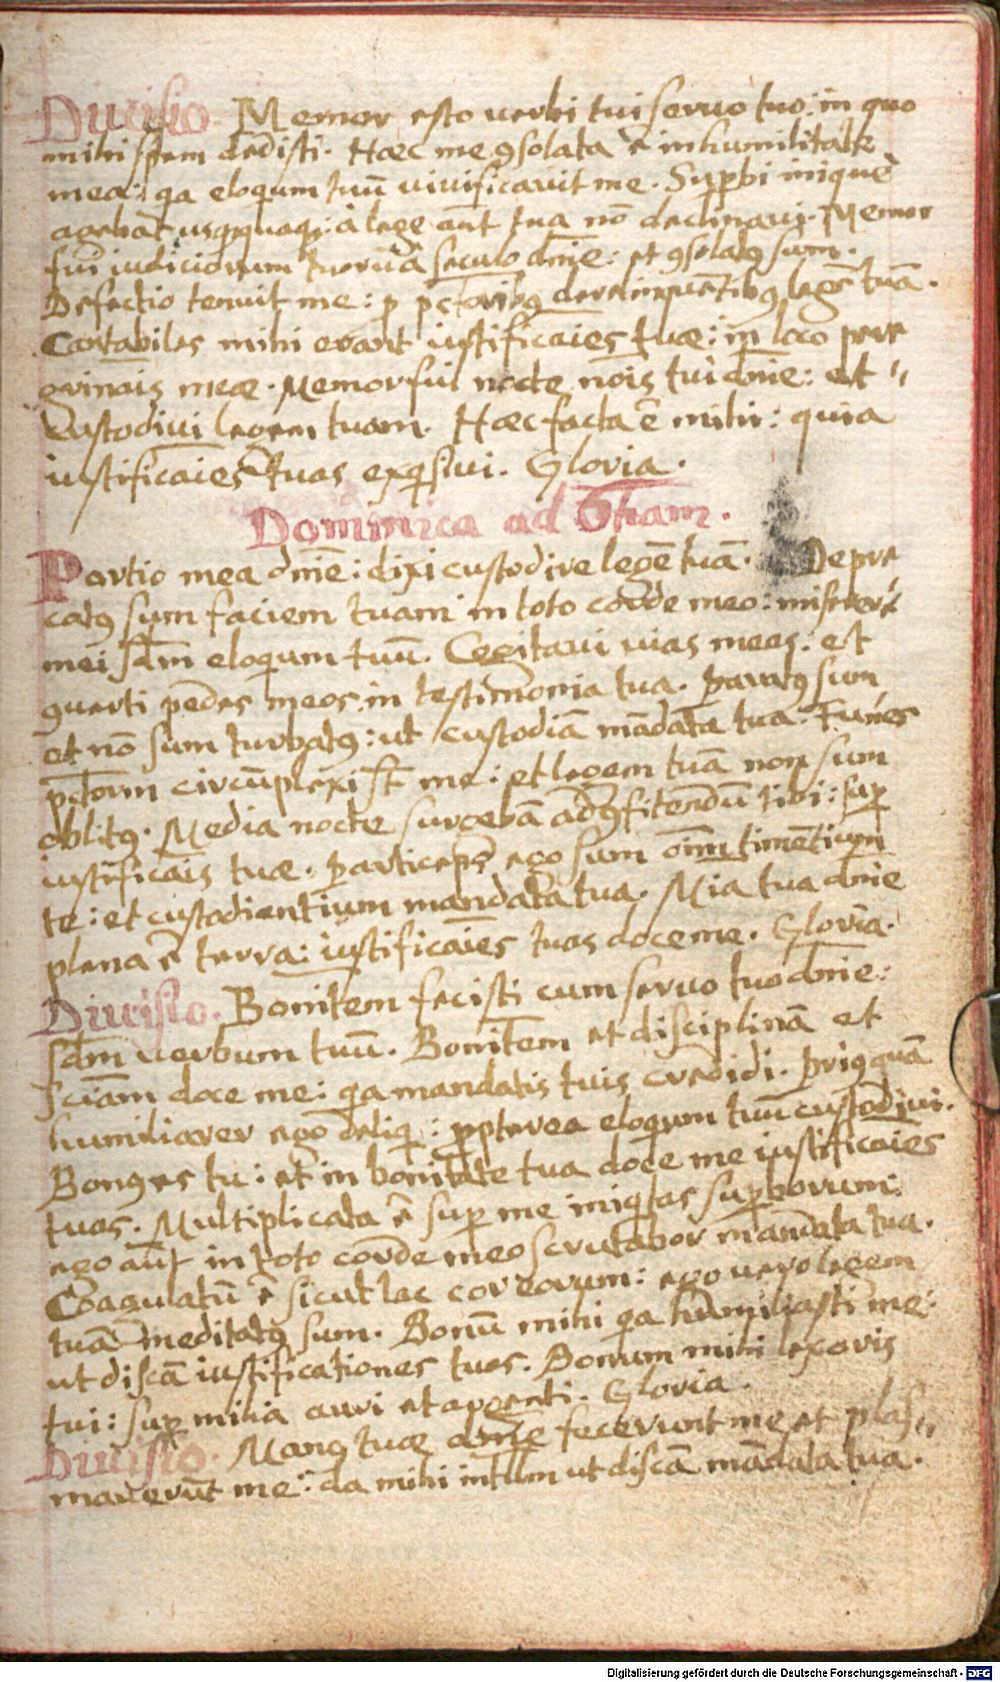 Diuisio. Memor esto uerbi tui seruo tuo: in quo
mihi spem dedisti. Haec me ꝯsolata ē in humilitate
mea: qa eloqium tuū uiuificauit me. Supbi inique
agebāt usqquaq; à lege aūt tua nō declinaui. Memor
fui iudiciorum tuorū à seculo dn̄e: et ꝯsolatꝰ sum.
Defectio tenuit me: p pctoribꝰ derelinquētibꝰ legē tuā.
Cantabiles mihi erant iustificac̄ies tuae: in loco pere
grinac̄is meae. Memor fui nocte nōis tui dn̄e: et
custodiui legem tuam. Haec facta ē mihi: quia
iustificac̄ies tuas exqsiui. Gloria.
Dominica ad Sextam.
Portio mea dn̄e: dixi custodire legē tuā. Depre
catꝰ sum faciem tuam in toto corde meo: miserere
mei scdm eloqium tuū. Cogitaui uias meas: et
ꝯuerti pedes meos in testimonia tua. Paratꝰ sum
et nō sum turbatꝰ: ut custodiā mādata tua. Funes
pctorum circūplexi st̄ me: et legem tuā non sum
oblitꝰ. Media nocte surgebā ad ꝯfitendū tibi: sup
iustificac̄is tuae. Particeps ego sum oīm timētium
te: et custodientium mandata tua. Mia tua dn̄e
plena ē terra: iustificac̄ies tuas doce me. Gloria.
Diuisio. Bonitem fecisti cum seruo tuo dn̄e:
scdm uerbum tuū. Bonitem et disciplinā et
sciām doce me: qa mandatis tuis credidi. Priꝰquā
humiliarer ego deliq: ppterea eloqium tuū custodiui.
Bonꝰ es tu: et in bonitate tua doce me iustificac̄ies
tuas. Multiplicata ē super me iniqtas supborum:
ego aūt in toto corde meo scrutabor mandata tua.
Coagulatū ē sicut lac cor eorum: ego uero legem
tuā meditatꝰ sum. Bonū mihi qa humiliasti me:
ut discā iustificationes tuas. Bonum mihi lex oris
tui: super milia auri et argenti. Gloria.
Diuisio. Manꝰ tuae dn̄e fecerunt me et plas
mauerūt me: da mihi intllm ut discā mādata tua.
Digitalisierung gefördert durch die Deutsche Forschungsgemeinschaft - DFG